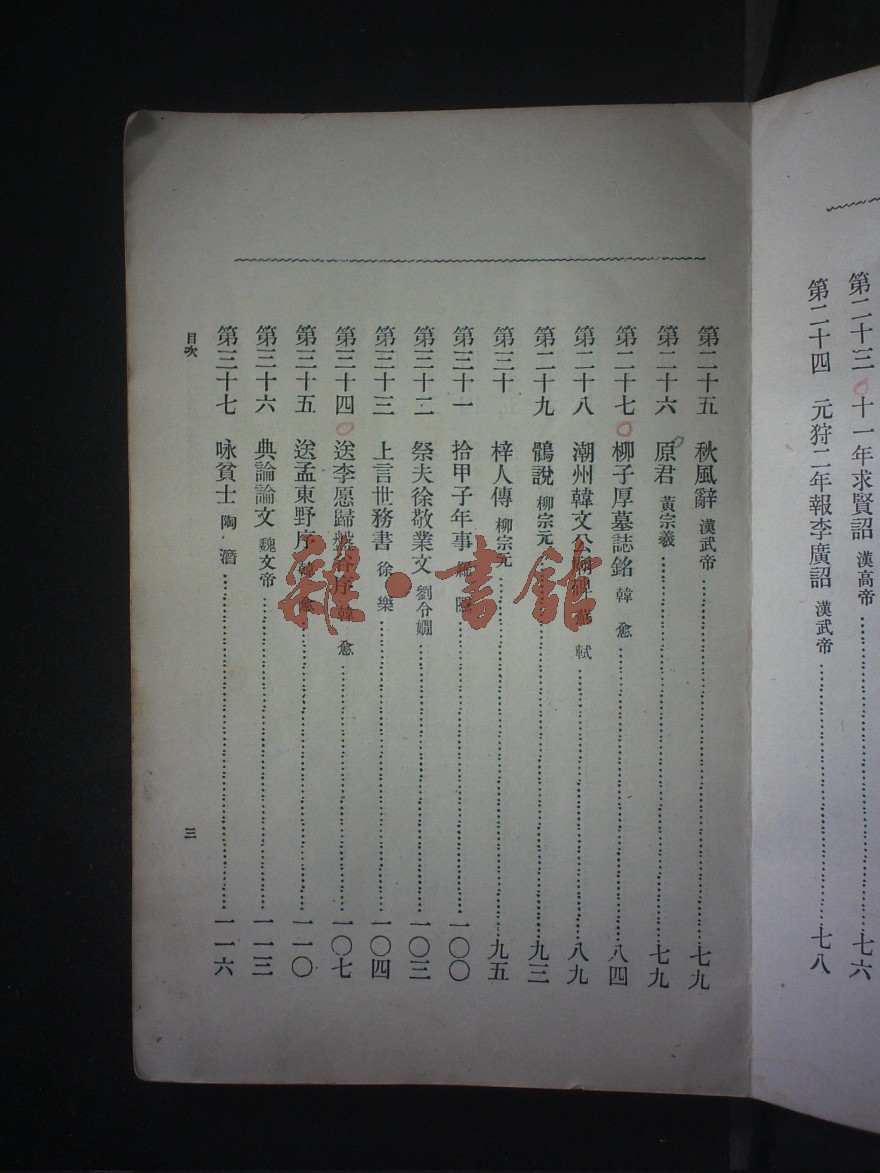 第二十三 十一年求賢詔 漢高帝……七六
第二十四 元狩二年報李廣詔 漢武帝……七八
第二十五 秋風辭 漢武帝……七九
第二十六 原君 黃宗羲……七九
第二十七 柳子厚墓誌銘 韓愈……八四
第二十八 潮州韓文公廟碑 蘇軾……八九
第二十九 鶻說 柳宗元……九三
第三十 梓人傳 柳宗元……九五
第三十一 拾甲子年事 羅隱……一〇〇
第三十二 祭夫徐敬業文 劉令嫺……一〇三
第三十三 上言世務書 徐樂……一〇四
第三十四 送李愿歸盤谷序 韓愈……一〇七
第三十五 送孟東野序 韓愈……一一〇
第三十六 典論論文 魏文帝……一一三
第三十七 咏貧士 陶潛……一一六
目次
三
雜·書館